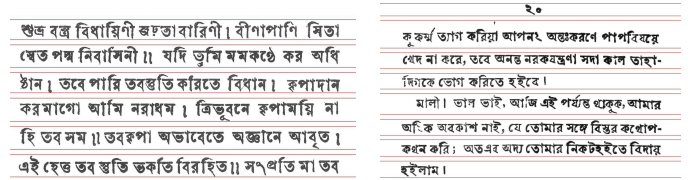 শুভ্র বস্ত্র বিধায়িণী জড়তাবারিণী। বীণাপাণি সিতা
শ্বেত পদ্ম নিবাসিনী॥ যদি তুমি মমকণ্ঠে কর অধি
ষ্ঠান। তবে পারি তবস্তুতি করিতে বিধান। কৃপাদান
করমাগো আমি নরাধম। ত্রিভূবনে কৃপাময়ি না
হি তব সম॥ তবকৃপা অভাবেতে অজ্ঞানে আবৃত।
এই হেত্ত তব স্তুতি ভকতি বিরহিত॥ সংপ্রতি মা তব
২০
কূকর্ম্ম ত্যাগ করিয়া আপন২ অন্তঃকরণে পাপবিষয়ে
খেদ না করে, তবে অনন্ত নরকযন্ত্রণা সদা কাল তাহা-
দিগকে ভোগ করিতে হইবে।
মালী। ভাল ভাই, আজি এই পর্য্যন্ত থাকূক, আমার
অধিক অবকাশ নাই, যে তোমার সঙ্গে বিস্তর কথোপ-
কথন করি; অতএব অদ্য তোমার নিকটহইতে বিদায়
হইলাম।